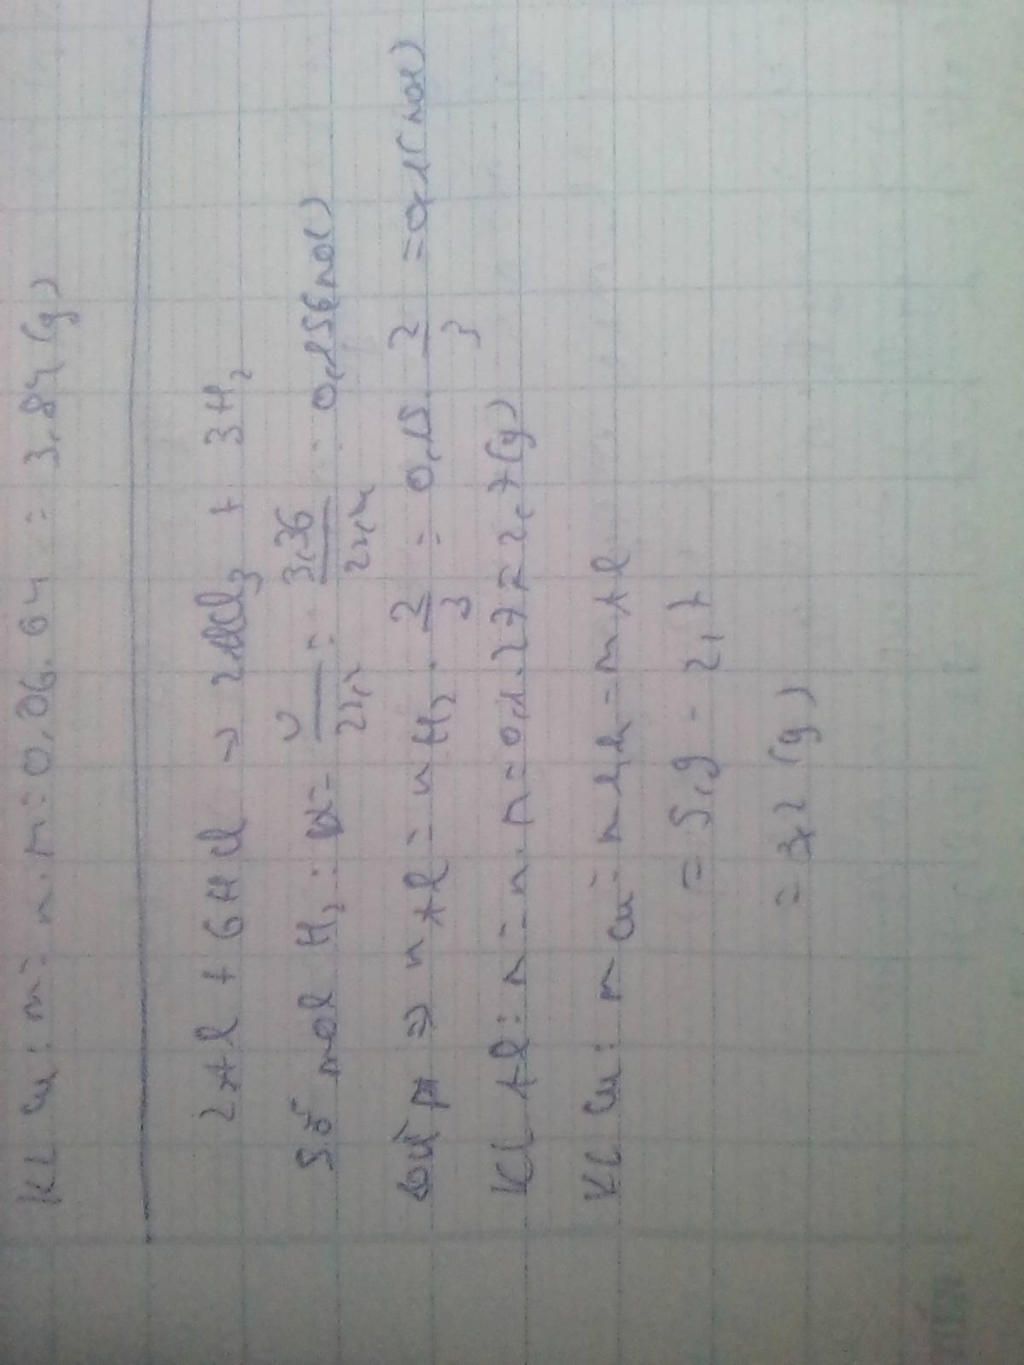 KL Cu: m = n.m = 0,06.64 = 3,84 (g)
2Al + 6HCl → 2AlCl3 + 3H2
Số mol H2: n = V/22,4 = 3,36/22,4 = 0,15 (mol)
Từ pt ⇒ nAl = nH2 . 2/3 = 0,15 . 2/3 = 0,1 (mol)
KL Al: m = n.m = 0,1.27 = 2,7 (g)
KL Cu: m Cu = m hh - m Al
= 5,9 - 2,7
= 3,2 (g)